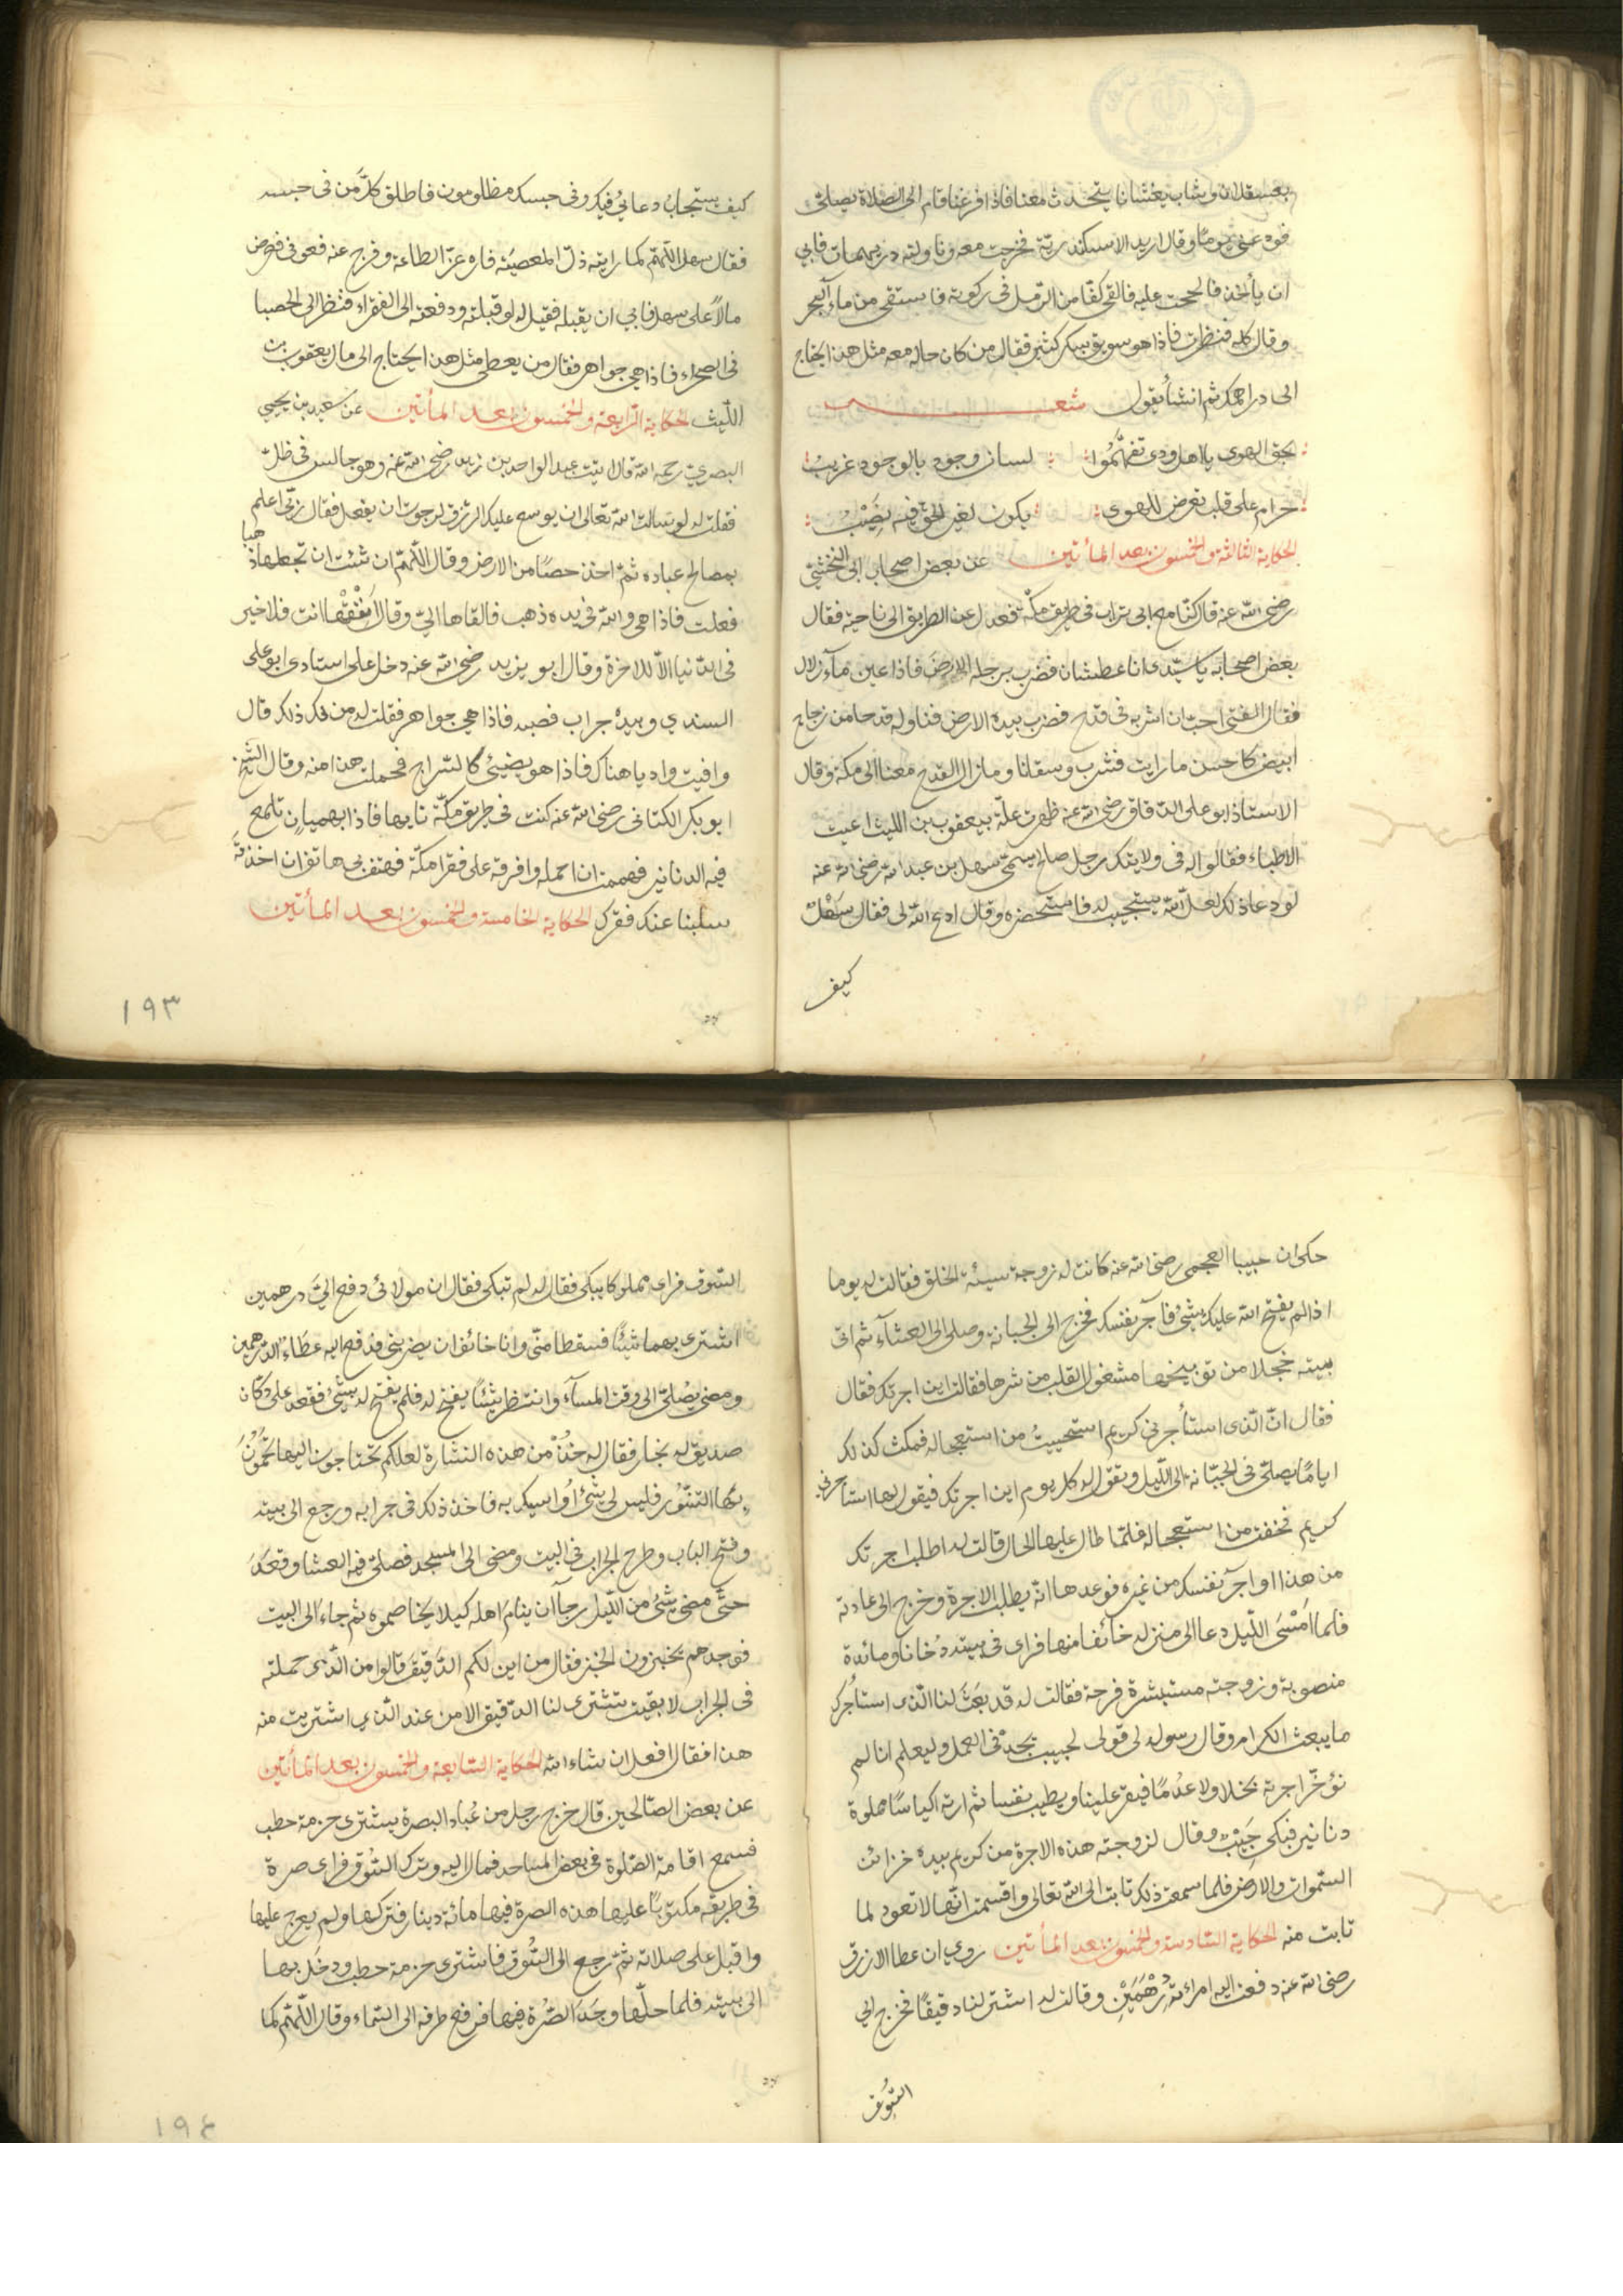 بعسقلان وشاب يغشانا يتحدث معنا فاذا فرغنا قام الى الصلاة يصلى
فودعنى يوما وقال اريد الاسكندرية فخرجت معه وناولته دريهمات فابى
ان يأخذ فالححت عليه فالقى كفّا من الرمل فى ركوته فاستقى من ماء البحر
وقال كله فنظرت فاذا هو سويق بسكر كثير فقال من كان حاله معه مثل هذا يحتاج
الى دراهمك ثم انشأ يقول شعـــر
بحق الهوى يا اهل ودى تفهّموا لسان وجود بالوجود غريب
حرام على قلب تعرض للهوى يكون لغير الحق فيه نصيب
الحكاية الثالثة والخمسون بعد المأتين عن بعض اصحاب ابى النخشبى
رضى الله عنه قال كنّا مع ابى تراب فى طريق مكّة فعدل عن الطريق الى ناحية فقال
بعض اصحابه يا سيّدى انا عطشان فضرب برجله الارض فاذا عين مآء زلال
فقال الفتى احب ان اشربه فى قدح فضرب بيده الارض فناوله قدحا من زجاج
ابيض كاحسن ما رايت فشرب وسقانا وما زال القدح معنا الى مكة وقال
الاستاذ ابو على الدقاق رضى الله عنه ظهرت علّة بيعقوب بن الليث اعيت
الاطباء فقالوا له فى ولايتك رجل صالح يسمّى سهل بن عبد الله رضى الله عنه
لو دعا ذلك لعل الله يستجيب له فاستحضره وقال ادع الله لى فقال سهل
كيف
كيف يستجاب دعائى فيك وفى حبسك مظلومون فاطلق كلّ من فى حبسه
فقال سهل اللّهمّ كما رايته ذلّ المعصية فاره عزّ الطاعة وفرج عنه فعوفى فعرض
مالاً على سهل فابى ان يقبله فقيل له لو قبلته ودفعته الى الفقراء فنظر الى الحصبا
فى الصحراء فاذا هى جواهر فقال من يعطى مثل هذا يحتاج الى مال يعقوب بن
اللّيث الحكاية الرّابعة والخمسون بعد المأتين عن سعيد بن يحيى
البصرىّ رحمه الله قال اتيت عبد الواحد بن زيد رضى الله عنه وهو جالس فى ظلّ
فقلت له لو سالت الله تعالى ان يوسع عليك الرزق لرجوت ان يفعل فقال ربّى اعلم
بمصالح عباده ثمّ اخذ حصًا من الارض وقال اللّهمّ ان شئت ان تجعلها ذهبا
فعلت فاذا هى والله فى يده ذهب فالقاها الىّ وقال انفقها انت فلا خير
فى الدّنيا الاّ للاخرة وقال ابو يزيد رضى الله عنه دخل على استادى ابو على
السندى وبيده جراب فصبه فاذا هى جواهر فقلت له من لك ذلك قال
وافيت واديا هناك فاذا هو يضيئ كالسّراج فحملت هذا منه وقال الشيخ
ابو بكر الكتانى رضى الله عنه كنت فى طريق مكّة تايها فاذا بهميان تلمع
فيه الدنانير فهممت ان احمله وافرقه على فقرا مكّة فهتف بى هاتف ان اخذته
سلبنا عنك فقرك الحكاية الخامسة والخمسون بعد المأتين
١٩٣
حكى ان حبيبا العجمى رضى الله عنه كانت له زوجة سيئة الخلق فقالت له يوما
اذا لم يفتح الله عليك بشئ فآجر نفسك فخرج الى الجبانة وصلى الى العشآء ثم اتى
بيته خجلا من توبيخها مشغول القلب من شرها فقالت اين اجرتك فقال
فقال انّ الّذى استأجرنى كريم استحييت من استعجاله فمكث كذلك
ايامًا يصلّى فى الجبّانة الى اللّيل وتقول له كل يوم اين اجرتك فيقول لها استاجرنى
كريم فخفت من استعجاله فلمّا طال عليها الحال قالت له اطلب اجرتك
من هذا او اجر نفسك من غيره فوعدها انّه يطلب الاجرة وخرج الى عادته
فلما امسى اللّيل دعا الى منزله خائفا منها فراى فى بيته دخانا ومائدة
منصوبة وزوجته مستبشرة فرحة فقالت له قد بعث لنا الّذى استأجرك
ما يبعث الكرام وقال رسوله لى قولى لحبيب يجدّ فى العمل وليعلم انا لم
نؤخّر اجرته بخلا ولا عدمًا فيقر علينا ويطيب نفسا ثم ارته اكياسًا مملوة
دنانير فبكى حبيب وقال لزوجته هذه الاجرة من كريم بيده خزائن
السّموات والارض فلما سمعت ذلك تابت الى الله تعالى واقسمت انّها لا تعود لما
تابت منه الحكاية السّادسة والخمسون بعد المأتين روى ان عطا الازرق
رضى الله عنه دفعت اليه امرءته درهمين وقالت له اشتر لنا دقيقًا فخرج الى
السّوق
السّوق فراى مملوكا يبكى فقال له لم تبكى فقال ان مولائى دفع الىّ درهمين
اشترى بهما شيئًا فسقطا منّى وانا خائف ان يضربنى فدفع اليه عطاء الدرهمين
ومضى يصلّى الى وقت المسآء وانتظر شيئًا يفتح له فلم يفتح له بشئ فقعد على دكان
صديق له نجار فقال له خذ من هذه النشارة لعلكم تحتاجون اليها تحمون
بها التنّور فليس لى شئ اواسيك به فاخذ ذلك فى جرابه ورجع الى بيته
وفتح الباب وطرح الجراب فى البيت ومضى الى المسجد فصلى فيه العشا وقعد
حتّى مضى شئ من اللّيل رجآ ان ينام اهله كيلا يخاصموه ثم جاء الى البيت
فوجدهم يخبزون الخبز فقال من اين لكم الدّقيق قالوا من الّذى حملته
فى الجراب لا بقيت تشترى لنا الدّقيق الا من عند الّذى اشتريت منه
هذا فقال افعل ان شاء الله الحكاية السّابعة والخمسون بعد المأتين
عن بعض الصّالحين قال خرج رجل من عُباد البصرة يشترى حزمة حطب
فسمع اقامة الصّلوة فى بعض المساجد فمال اليه وترك السّوق فراى صرة
فى طريقه مكتوبًا عليها هذه الصرة فيها مائة دينار فتركها ولم يعرج عليها
واقبل على صلاته ثمّ رجع الى السّوق فاشترى حزمة حطب ودخل بها
الى بيته فلما حلّها وجد الصّرة فيها فرفع طرفه الى السّماء وقال اللّهمّ كما
١٩٤